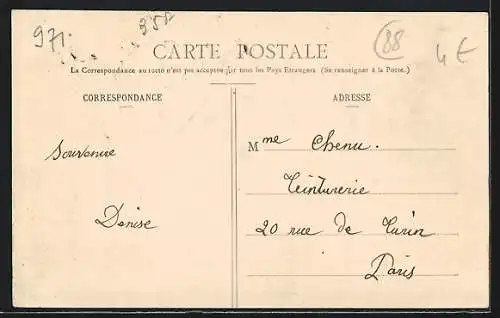 971.
35A
88
4€
CARTE POSTALE
La Correspondance au recto n'est pas acceptée par tous les Pays Etrangers (Se renseigner à la Poste.)
CORRESPONDANCE
Souvenire
Denise
ADRESSE
Mme Chenu.
Teinturerie
20 rue de Turin
Paris